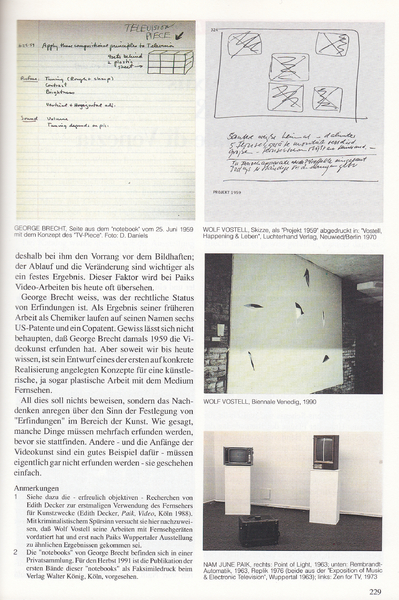 TELEVISION
PIECE
Apply these compositional principles to Television
Picture. Tuning
Contrast
Brightness
Sound. Volume
GEORGE BRECHT, Seite aus dem "notebook" vom 25. Juni 1959
mit dem Konzept des "TV-Piece". Foto: D. Daniels
PROJEKT 1959
WOLF VOSTELL, Skizze, als "Projekt 1959" abgedruckt in: "Vostell,
Happening & Leben", Luchterhand Verlag, Neuwied/Berlin 1970
deshalb bei ihm den Vorrang vor dem Bildhaften;
der Ablauf und die Veränderung sind wichtiger als
ein festes Ergebnis. Dieser Faktor wird bei Paiks
Video-Arbeiten bis heute oft übersehen.
George Brecht weiss, was der rechtliche Status
von Erfindungen ist. Als Ergebnis seiner früheren
Arbeit als Chemiker laufen auf seinen Namen sechs
US-Patente und ein Copatent. Gewiss lässt sich nicht
behaupten, daß George Brecht damals 1959 die Vi-
deokunst erfunden hat. Aber soweit wir bis heute
wissen, ist sein Entwurf eines der ersten auf konkrete
Realisierung angelegten Konzepte für eine künstle-
rische, ja sogar plastische Arbeit mit dem Medium
Fernsehen.
All dies soll nichts beweisen, sondern das Nach-
denken anregen über den Sinn der Festlegung von
"Erfindungen" im Bereich der Kunst. Wie gesagt,
manche Dinge müssen mehrfach erfunden werden,
bevor sie stattfinden. Andere - und die Anfänge der
Videokunst sind ein gutes Beispiel dafür - müssen
eigentlich gar nicht erfunden werden - sie geschehen
einfach.
WOLF VOSTELL, Biennale Venedig, 1990
Anmerkungen
1 Siehe dazu die - erfreulich objektiven - Recherchen von
Edith Decker zur erstmaligen Verwendung des Fernsehers
für Kunstzwecke (Edith Decker, Paik, Video, Köln 1988).
Mit kriminalistischem Spürsinn versucht sie hier nachzuwei-
sen, daß Wolf Vostell seine Arbeiten mit Fernsehgeräten
vordatiert hat und erst nach Paiks Wuppertaler Ausstellung
zu ähnlichen Ergebnissen gekommen sei.
2 Die "notebooks" von George Brecht befinden sich in einer
Privatsammlung. Für den Herbst 1991 ist die Publikation der
ersten Bände dieser "notebooks" als Faksimiledruck beim
Verlag Walter König, Köln, vorgesehen.
NAM JUNE PAIK, rechts: Point of Light, 1963; unten: Rembrandt-
Automatik, 1963, Replik 1976 (beide aus der "Exposition of Music
& Electronic Television", Wuppertal 1963); links: Zen for TV, 1973
229